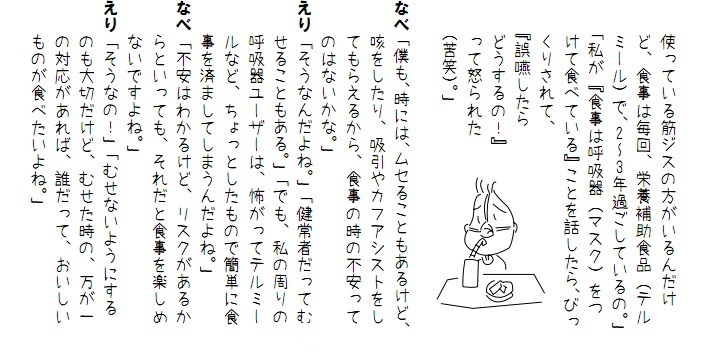 使っている筋ジスの方がいるんだけ
ど、食事は毎回、栄養補助食品（テル
ミール）で、2～3年過ごしているの。」
「私が『食事は呼吸器（マスク）をつ
けて食べている』ことを話したら、びっ
くりされて、
『誤嚥したら
どうするの！』
って怒られた
（苦笑）。」
なべ「僕も、時には、ムセることもあるけど、
咳をしたり、吸引やカフアシストをし
てもらえるから、食事の時の不安って
のはないかな。」
えり「そうなんだよね。」「健常者だってむ
せることもある。」「でも、私の周りの
呼吸器ユーザーは、怖がってテルミー
ルなど、ちょっとしたもので簡単に食
事を済ましてしまうんだよね。」
なべ「不安はわかるけど、リスクがあるか
らといっても、それだと食事を楽しめ
ないですよね。」
えり「そうなの！」「むせないようにする
のも大切だけど、むせた時の、万が一
の対応があれば、誰だって、おいしい
ものが食べたいよね。」